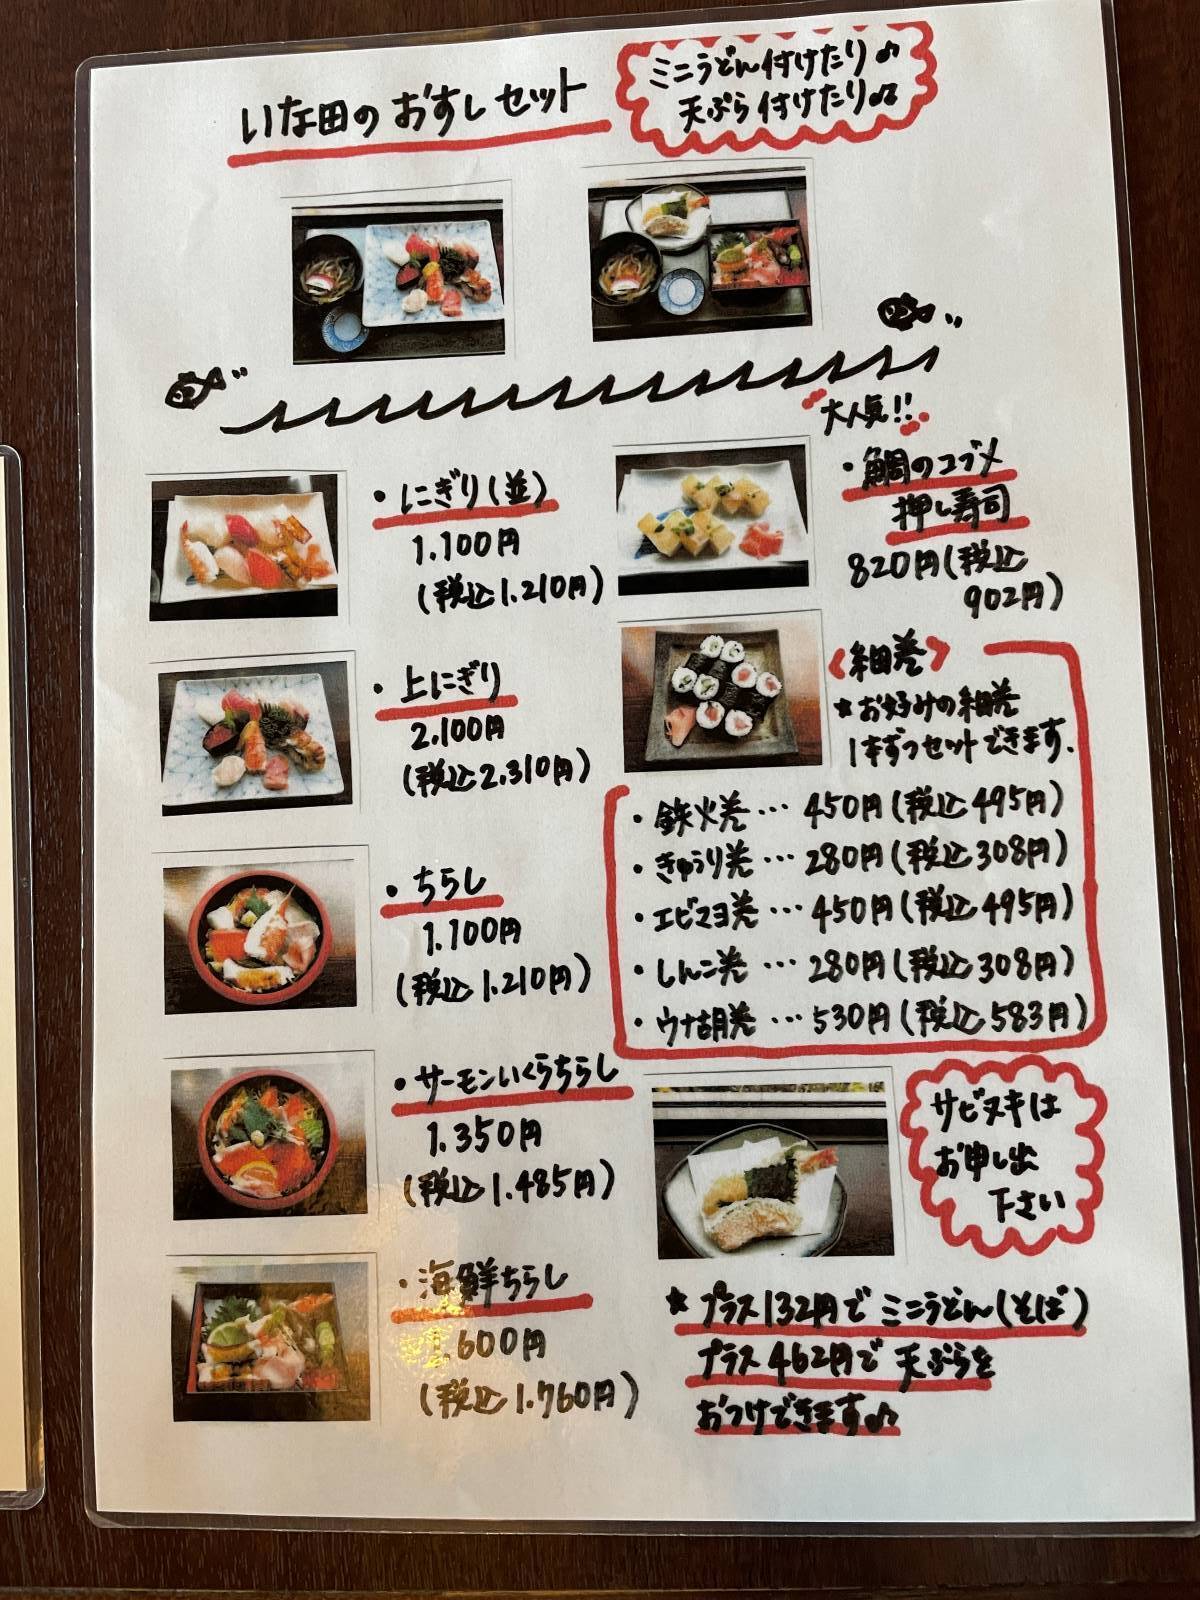 いな田のおすしセット
ミニうどん付けたり♪
天ぷら付けたり♫
・にぎり(並)
1.100円
(税込1.210円)
・上にぎり
2.100円
(税込2.310円)
・ちらし
1.100円
(税込1.210円)
・サーモンいくらちらし
1.350円
(税込1.485円)
・海鮮ちらし
1.600円
(税込1.760円)
大人気!!
・鯛のコブメ
押し寿司
820円(税込
902円)
<細巻>
★お好みの細巻
1本ずつセットできます.
・鉄火巻…450円(税込495円)
・きゅうり巻…280円(税込308円)
・エビマヨ巻…450円(税込495円)
・しんこ巻…280円(税込308円)
・ウナ胡巻…530円(税込583円)
サビヌキは
お申し出
下さい
★プラス132円でミニうどん(そば)
プラス462円で天ぷらを
おつけできます♪